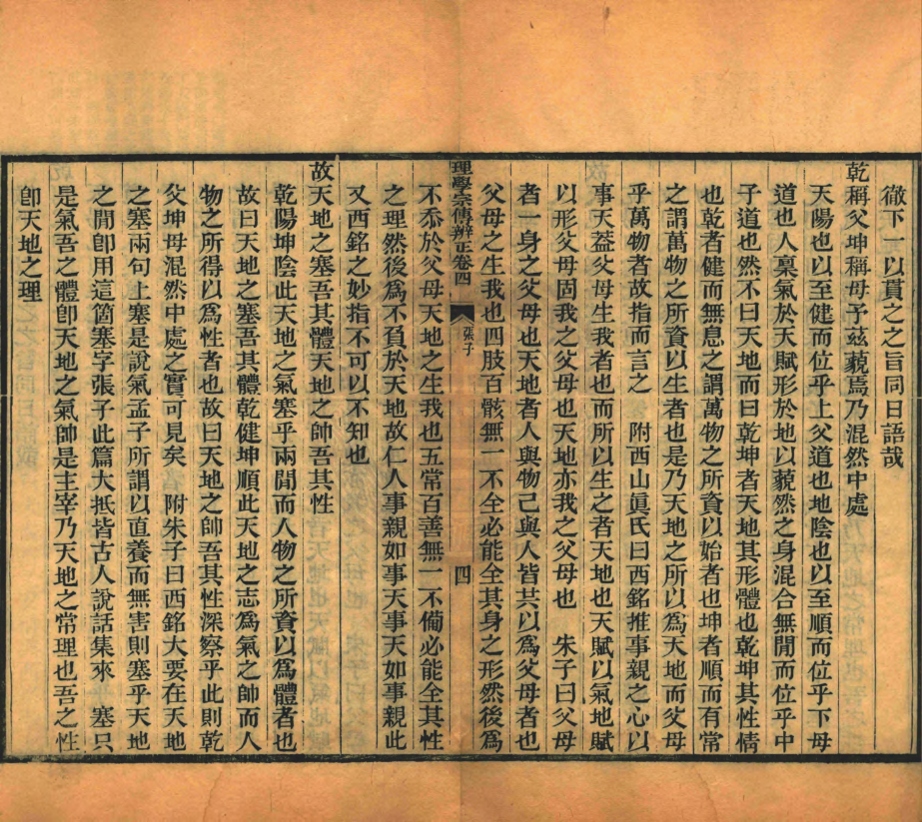 徹下一以貫之之旨同日語哉
乾稱父坤稱母予茲藐焉乃混然中處
天陽也以至健而位乎上父道也地陰也以至順而位乎下母
道也人稟氣於天賦形於地以藐然之身混合無閒而位乎中
子道也然不曰天地而曰乾坤者天地其形體也乾坤其性情
也乾者健而無息之謂萬物之所資以始者也坤者順而有常
之謂萬物之所資以生者也是乃天地之所以為天地而父母
乎萬物者故指而言之 附西山眞氏曰西銘推事親之心以
事天蓋父母生我者也而所以生之者天地也天賦以氣地賦
以形父母固我之父母也天地亦我之父母也 朱子曰父母
者一身之父母也天地者人與物己與人皆共以為父母者也
父母之生我也四肢百骸無一不全必能全其身之形然後為
理學宗傳辨正卷四 張子 四
不忝於父母天地之生我也五常百善無一不備必能全其性
之理然後為不負於天地故仁人事親如事天事天如事親此
又西銘之妙指不可以不知也
故天地之塞吾其體天地之帥吾其性
乾陽坤陰此天地之氣塞乎兩閒而人物之所資以為體者也
故曰天地之塞吾其體乾健坤順此天地之志為氣之帥而人
物之所得以為性者也故曰天地之帥吾其性深察乎此則乾
父坤母混然中處之實可見矣 附朱子曰西銘大要在天地
之塞兩句上塞是說氣孟子所謂以直養而無害則塞乎天地
之閒卽用這箇塞字張子此篇大抵皆古人說話集來 塞只
是氣吾之體卽天地之氣帥是主宰乃天地之常理也吾之性
卽天地之理